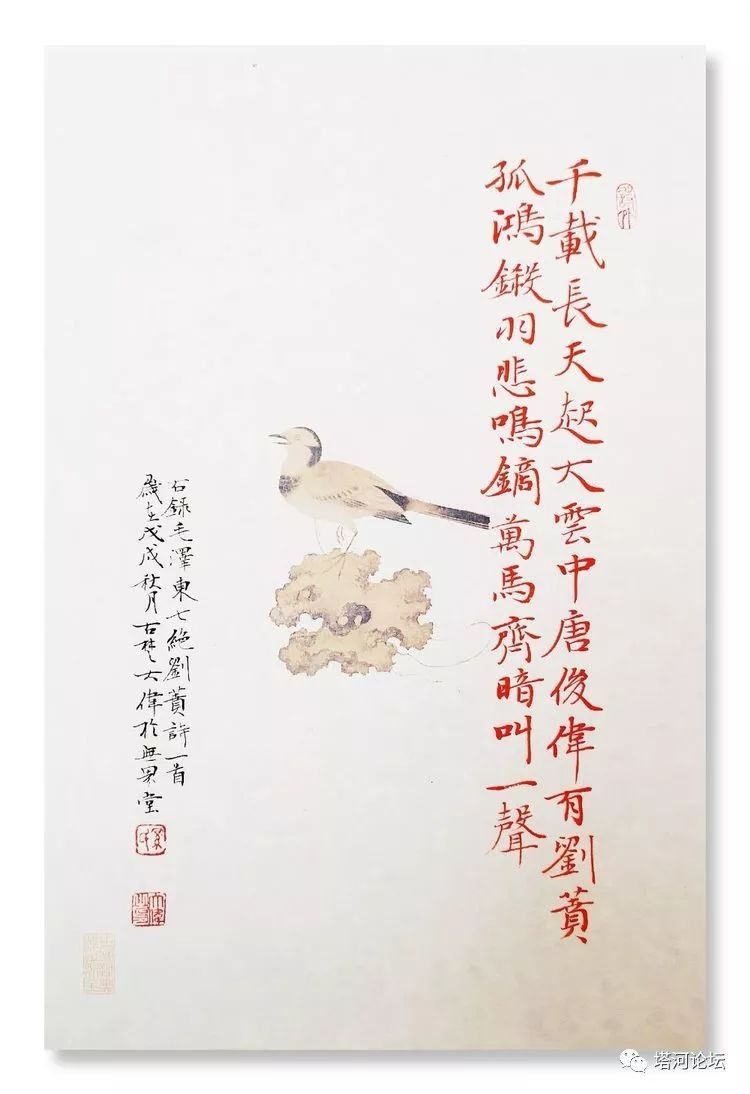 千載長天起大雲中唐俊偉有劉蕡
孤鴻鎩羽悲鳴鏑萬馬齊暗叫一聲
右錄毛澤東七絕劉蕡詩一首
歲在戊戌秋月古楚大偉於無果堂
塔河论坛